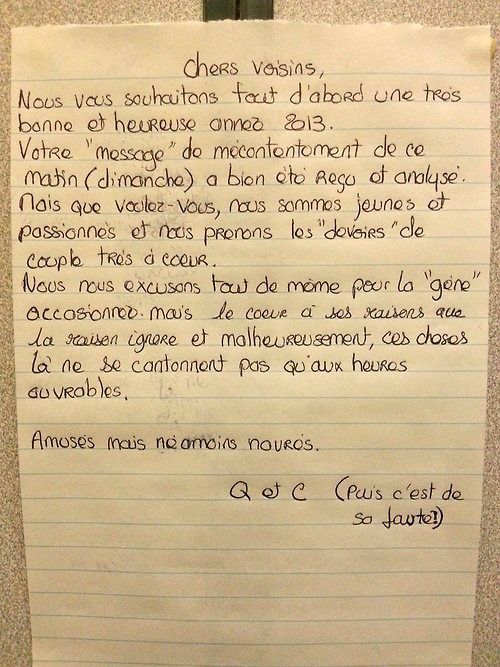 Chers voisins,
Nous vous souhaitons tout d'abord une très
bonne et heureuse année 2013.
Votre "message" de mécontentement de ce
matin (dimanche) a bien été reçu et analysé.
Mais que voulez-vous, nous sommes jeunes et
passionnés et nous prenons les "devoirs" de
couple très à coeur.
Nous nous excusons tout de même pour la "gêne"
occasionnée mais le coeur a ses raisons que
la raison ignore et malheureusement, ces choses
là ne se cantonnent pas qu'aux heures
ouvrables.
Amusés mais néamoins navrés.
Q et C (Puis c'est de
sa faute!)